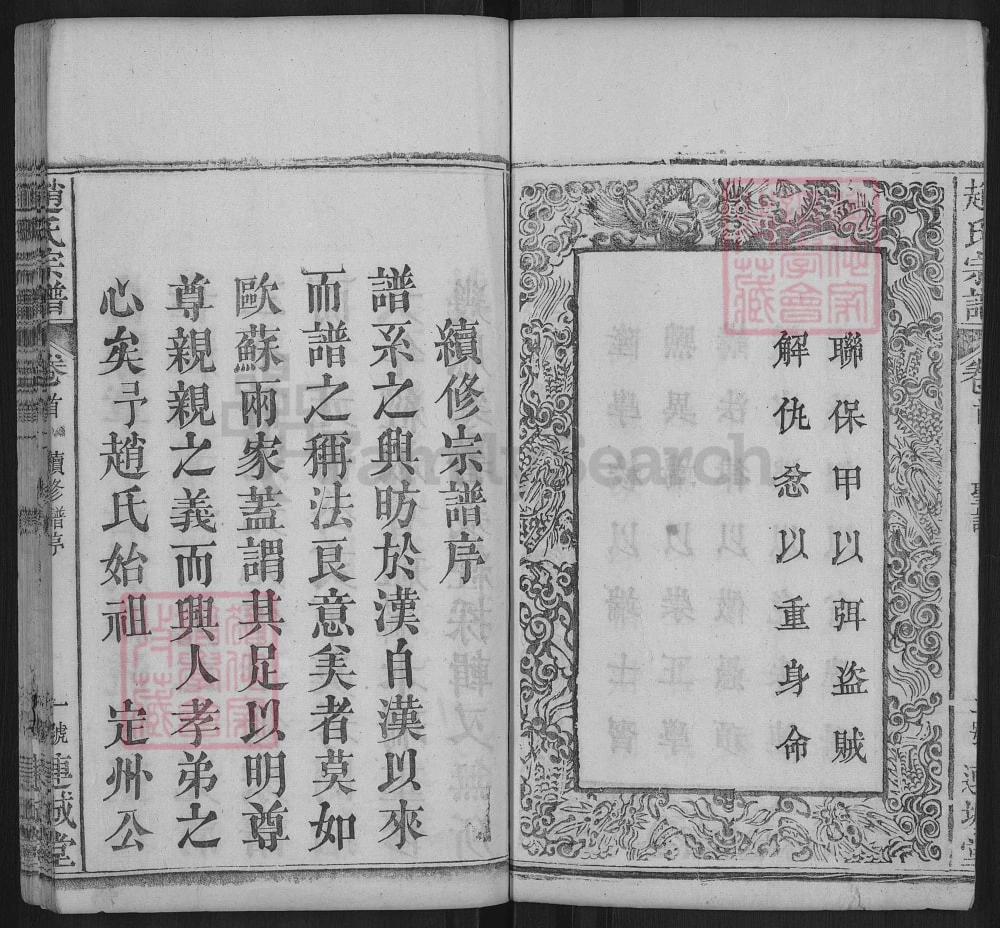 趙氏宗譜
卷首
聖諭
一號
連城堂
聯保甲以弭盜賊
解仇忿以重身命
續修宗譜序
譜系之興昉於漢自漢以來
而譜之稱法良意美者莫如
歐蘇兩家蓋謂其足以明尊
尊親親之義而興人孝弟之
心矣予趙氏始祖定州公
趙氏宗譜
卷首
續修譜序
一號
連城堂
FamilySearch